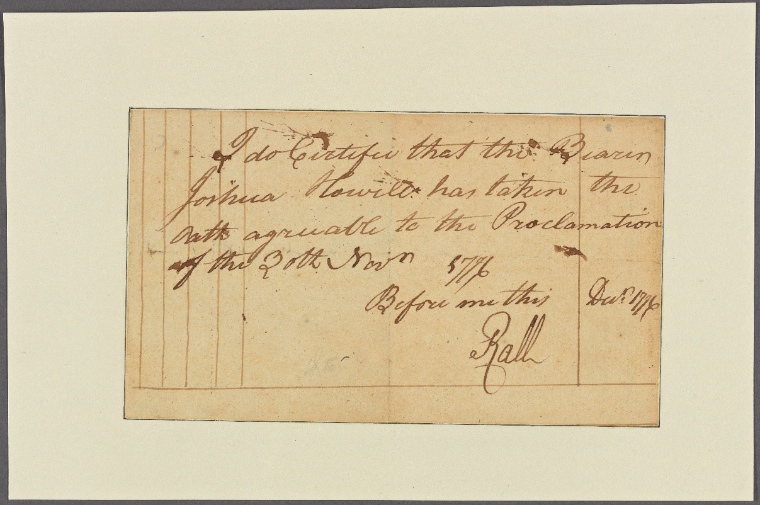 I do Certifie that the Bearen
Joshua Howell has taken the
Oath agreuable to the Proclamation
of the 30th Novn 1776
Before me this Decr 1776
Rall